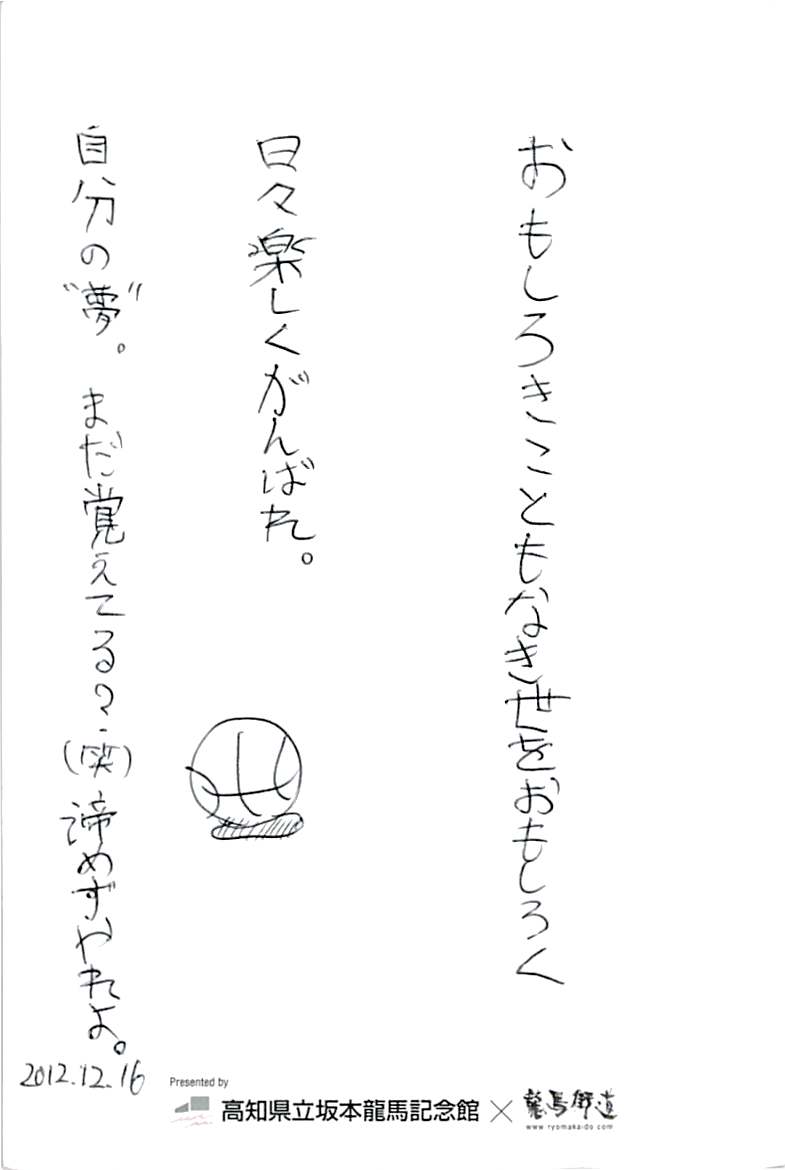 おもしろきこともなき世をおもしろく
日々楽しくがんばれ。
自分の〝夢〟。 まだ覚えてる？(笑)諦めずやれよ。
2012.12.16
Presented by
高知県立坂本龍馬記念館×龍馬街道
www.ryomakaido.com